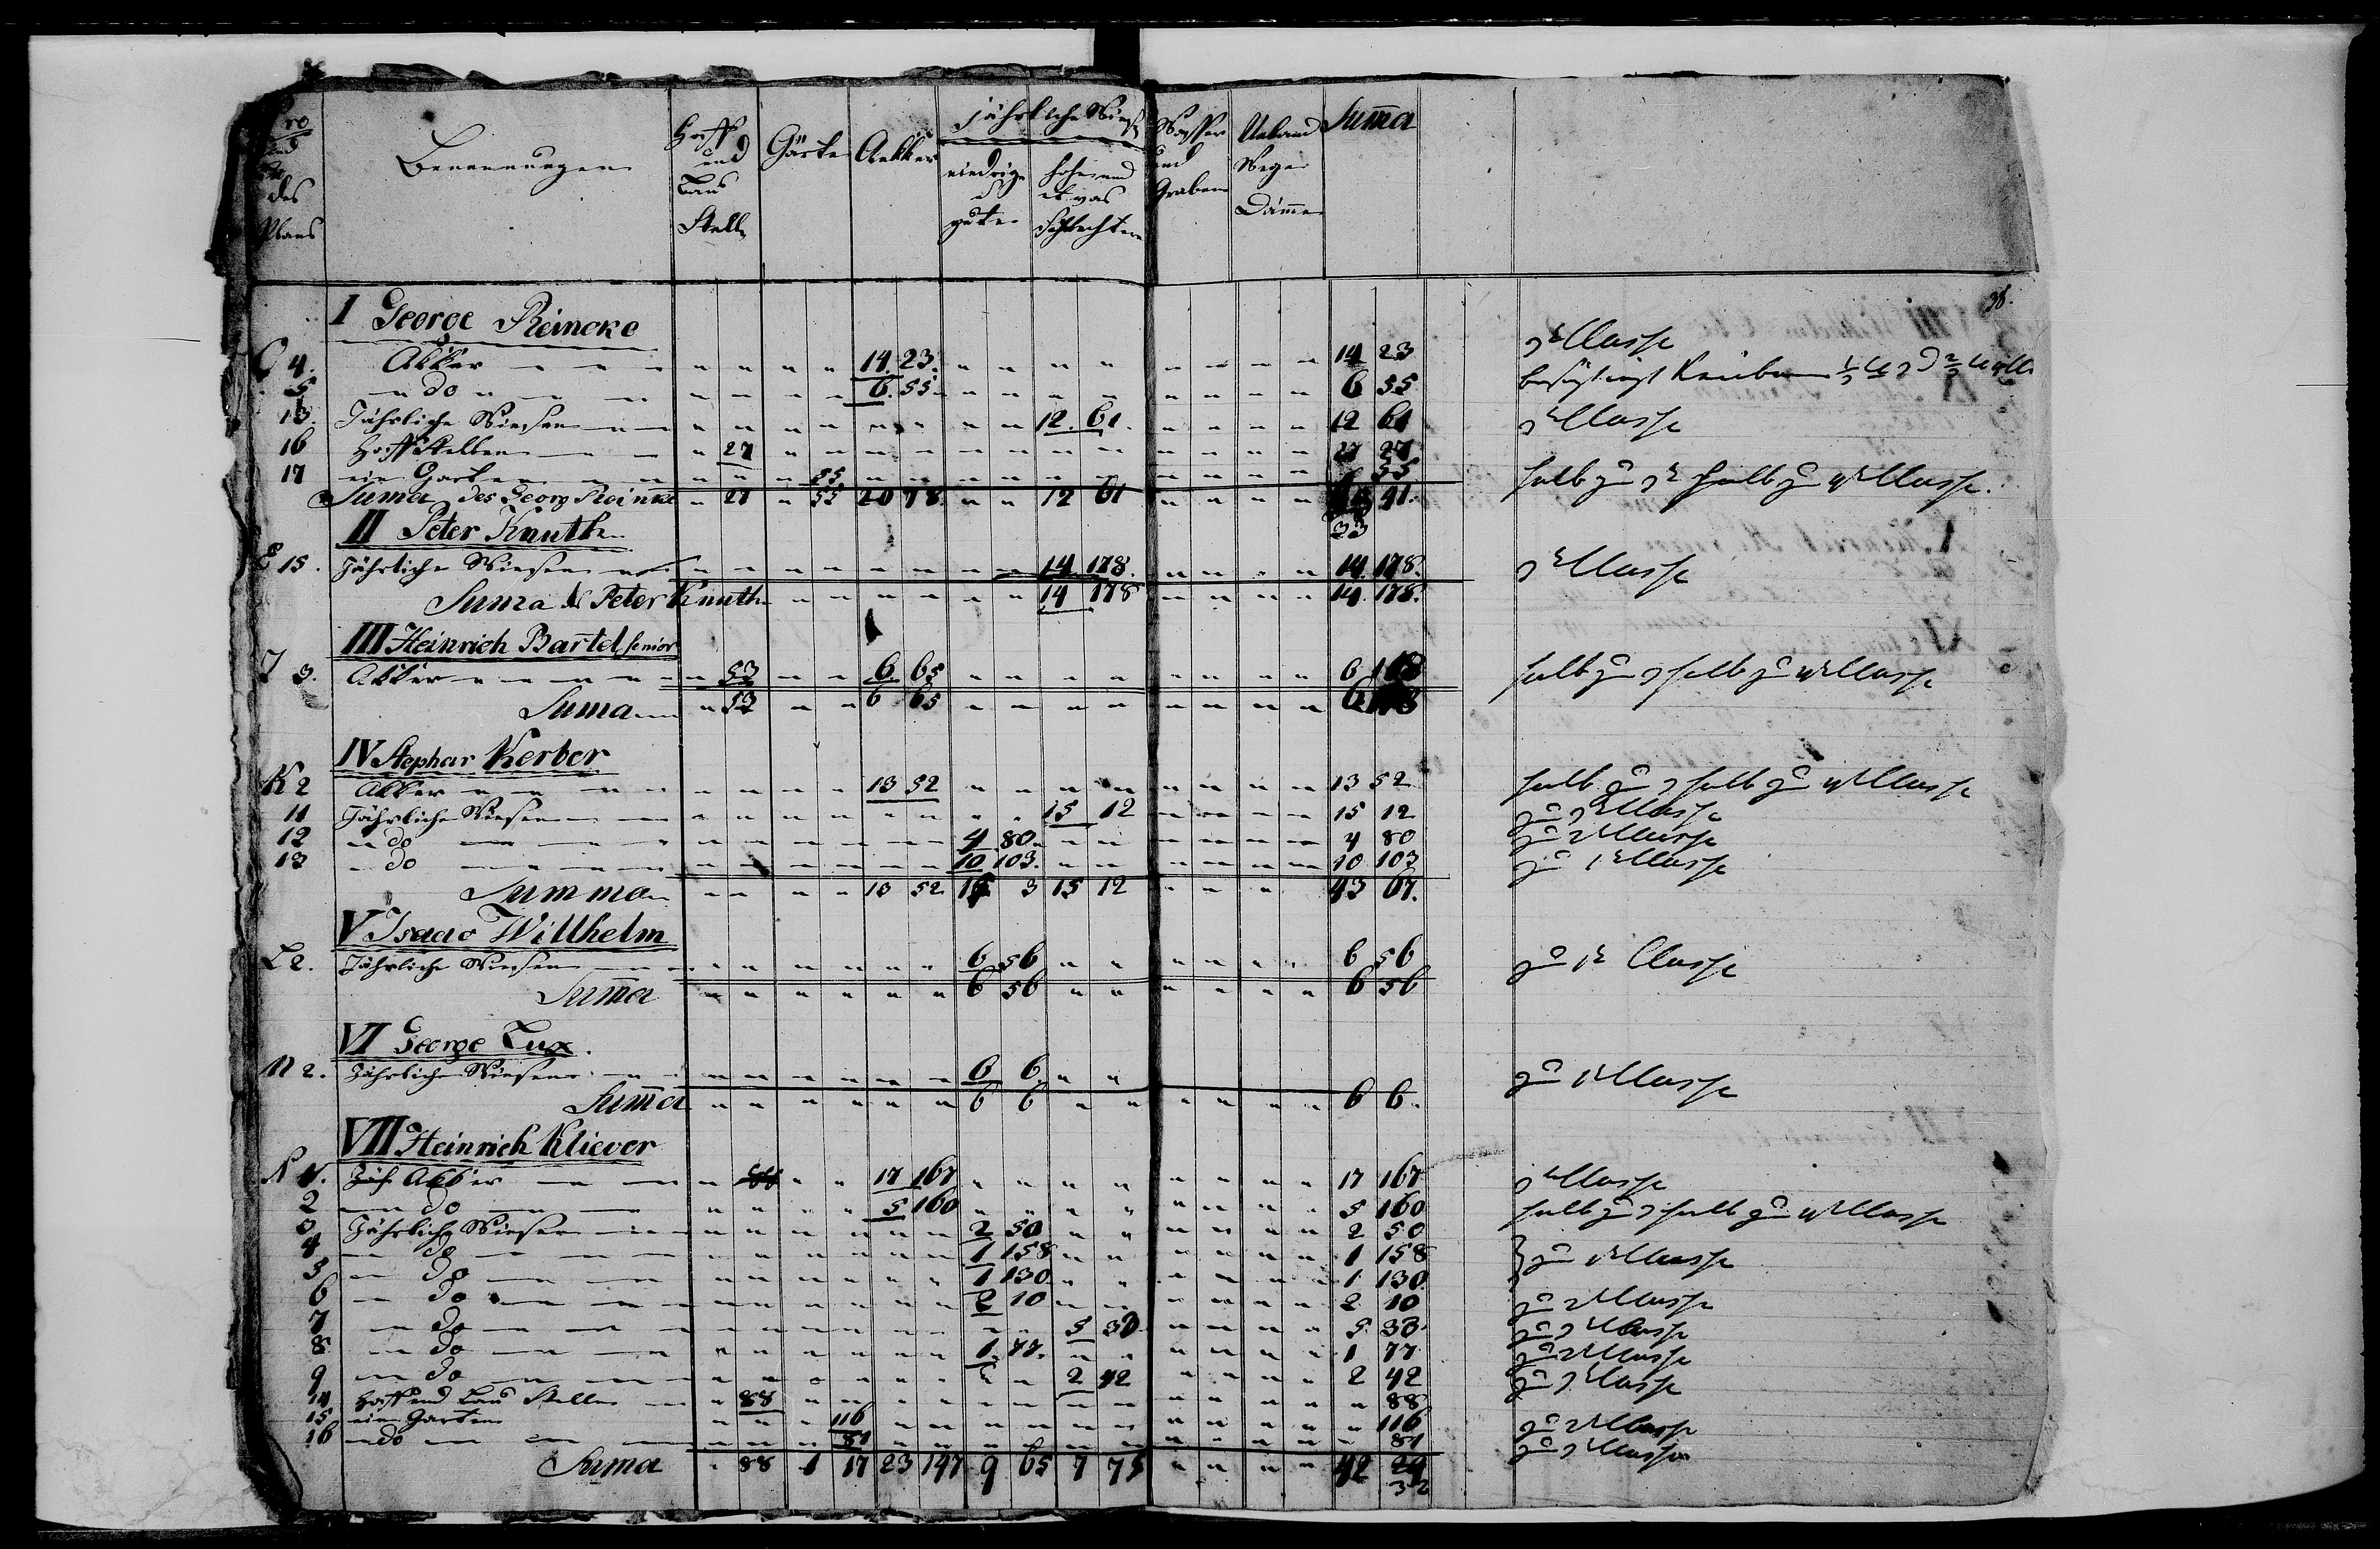 des
Plans
Benennungen
Hoff
und
Bau
Stelle
Gärte
Aekker
Jährliche Wiesen
niedrige
gute
hohe und
etwas
schlechtere
Wasser
und
Graben
Unland
Wege
Dämme
Summa
38.
I George Reincke
4. Akker 14. 23. 14 23 3te Classe
5 do 6. 55. 6 55
13. Jährliche Wiesen 12. 61. 12 61 3te Classe
16 Hoffstelle 27 27
17 ein Garten 55 55 halb zu 3te halb zu 4te Classe.
Suma des Georg Reincke 27 55 20 78. 12 61 41.
33
II Peter Knuth
E 15. Jährliche Wiesen 14 178. 14. 178. 3te Classe
Suma des Peter Knuth 14 178 14. 178.
III Heinrich Bartel senior
J 3. Akker 53 6. 65 6 118 halb zu 3 halb zu 4te Classe
Suma 53 6 65 6 118
IV Stephan Kerber
K 2 Akker 13 52 13 52 halb zu 3 halb zu 4te Classe
11 Jährliche Wiesen 15 12 15 12 zu 3te Classe
12 do 4 80. 4 80 zu 2te Classe
13 do 10 103. 10 103 zu 1te Classe
Summa 13 52 3 15 12 43 67.
V Isaac Willhelm
L 2. Jährliche Wiesen 6 56 6 56 zu 1te Classe
Suma 6 56 6 56
VI George Lux.
M 2. Jährliche Wiesen 6 6 zu 1te Classe
Suma 6 6 6 6.
VII Heinrich Kliever
Akker 17 167 17 167 3te Classe
2 do 5 160 5 160 halb zu 3 halb zu 4te Classe
3 Jährliche Wiesen 2 50 2 50
4 do 1 158 1 158 zu 1te Classe
5 do 1 130. 1 130
6 do 2 10 2 10 zu 2te Classe
7 do 5 33 5 33. zu 3te Classe
8 do 1. 77. 1 77 zu 2te Classe
9 do 2 42 2 42 zu 3te Classe
14 Hoff und Bau Stelle 88 88
15 ein Garten 116 116 zu 2te Classe
16 do 81 81 zu 3te Classe
Suma 88 1 17 23 147 9 65 7 75 42 29
32